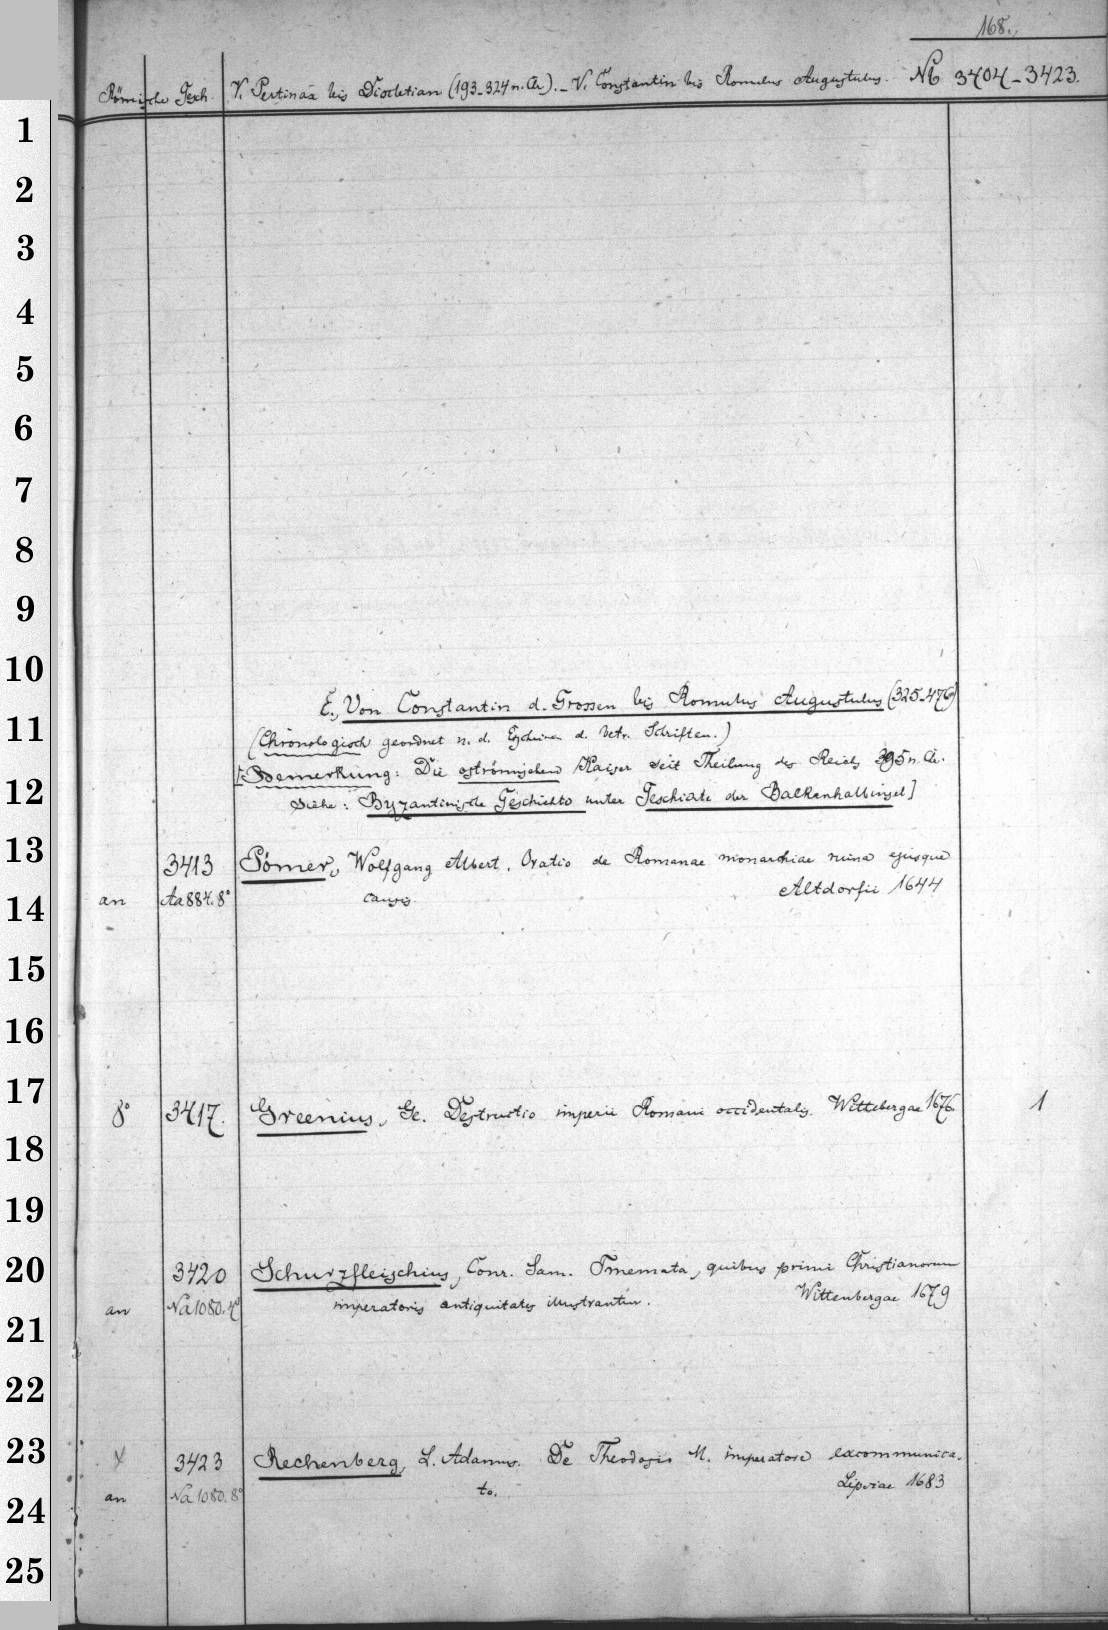 168.
Römische Gesch. V. Pertinax bis Diocletian (193-324 n. Chr.). - V. Constantin bis Romulus Augustulus. No 3404-3423.
1
2
3
4
5
6
7
8
9
10
E., Von Constantin d. Grossen bis Romulus Augustulus (325-476)
11
(Chronologisch geordnet n. d. Erscheinen d. betr. Schriften.)
[Bemerkung: Die oströmischen Kaiser seit Theilung des Reichs 395 n. Chr.
12
siehe: Byzantinische Geschichte unter Geschichte der Balkanhalbinsel]
13
3413 Pömer, Wolfgang Albert. Oratio de Romanae monarchiae ruina ejusque
14
an Aa 884. 8° causis. Altdorfii 1644
15
16
17
8° 3417. Greenius, Ge. Destructio imperii Romani occidentalis. Wittebergae 1676 1
18
19
20
3420 Schurzfleischius, Conr. Sam. Tmemata, quibus primi Christianorum
an Na 1080. 4° imperatoris antiquitates illustrantur. Wittenbergae 1679
21
22
23
3423 Rechenberg, L. Adamus. De Theodosio M. imperatore excommunica-
an Na 1080. 8° to. Lipsiae 1683
24
25